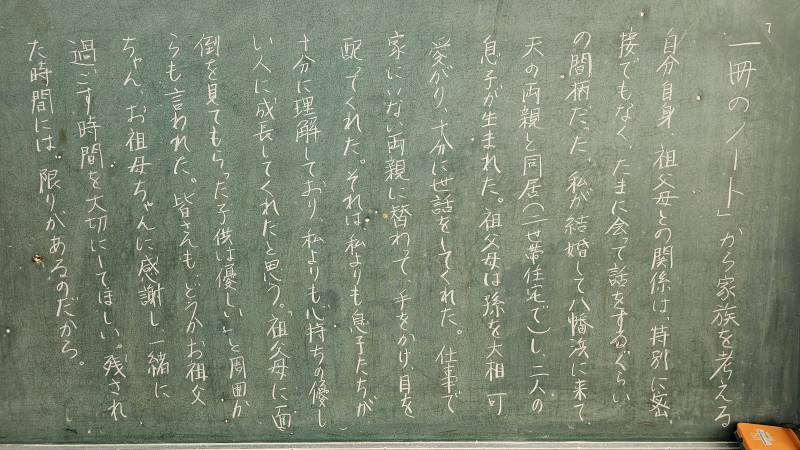 「一冊のノート」から家族を考える
自分自身、祖父母との関係は、特別に密
接でもなく、たまに会って話をするぐらい
の間柄だった。私が結婚して八幡浜に来て
夫の両親と同居（二世帯住宅で）し、二人の
息子が生まれた。祖父母は孫を大相可
愛がり、十分に世話をしてくれた。仕事で
家にいない両親に替わって、手をかけ、目を
配ってくれた。それは私よりも息子たちが
十分に理解しており、私よりも心持ちの優し
い人に成長してくれたと思う。「祖父母に面
倒を見てもらった子供は優しい」と周囲か
らも言われた。皆さんも、どうかお祖父
ちゃん、お祖母ちゃんに感謝し一緒に
過ごす時間を大切にしてほしい。残され
た時間には、限りがあるのだから。